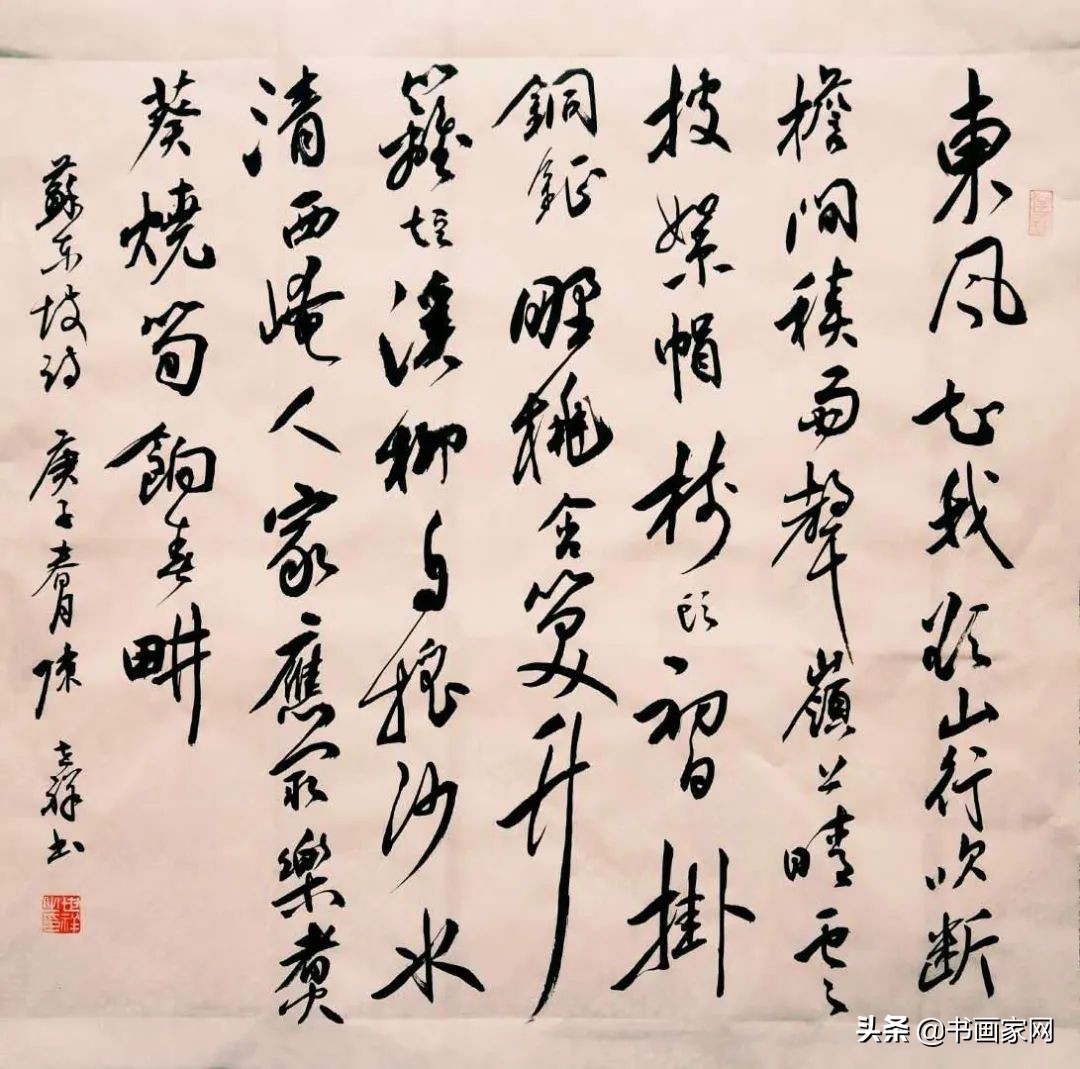 東風知我欲山行吹断
檐間積雨聲嶺上晴雲
披絮帽樹頭初日掛
銅鉦野桃含笑竹
籬短溪柳自搖沙水
清西崦人家應最樂煮
葵燒筍餉春畊
蘇东坡诗 庚子春月陳世祥书
世祥之印
头条 @书画家网